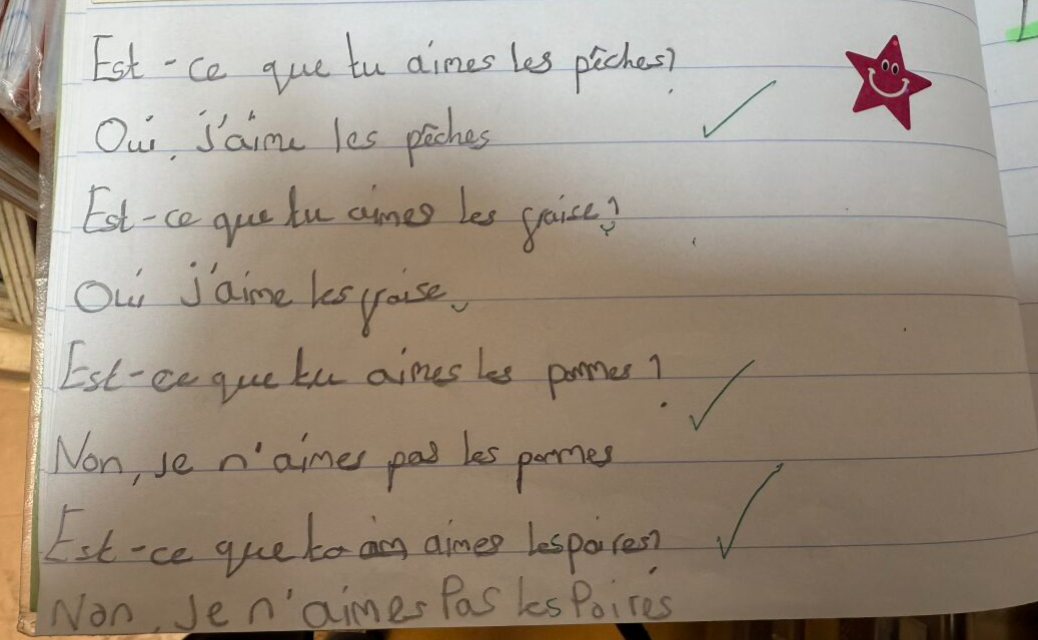 Est-ce que tu aimes les pêches?
Oui, j'aime les pêches
Est-ce que tu aimes les fraise?
Oui j'aime les fraise.
Est-ce que tu aimes les pommes?
Non, je n'aimes pas les pommes
Est-ce que aimes les poires?
Non, Je n'aimes Pas les Poires